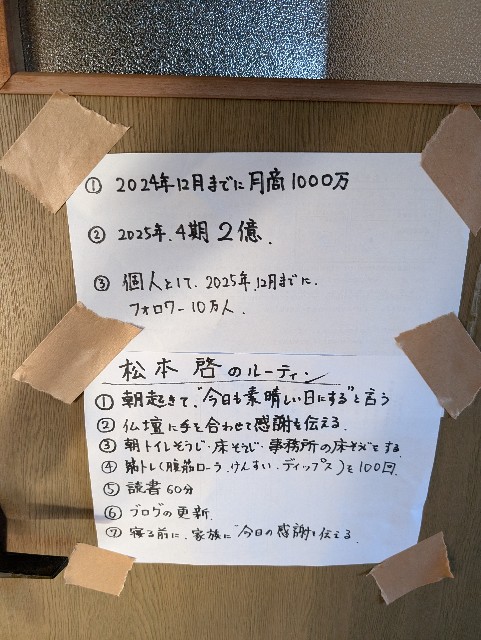 ① 2024年12月までに月商1000万
② 2025年.4期2億.
③ 個人として、2025年.12月までに.
フォロワー10万人.
松本啓のルーティン
① 朝起きて、"今日も素晴しい日にする"と言う
② 仏壇に手を合わせて感謝を伝える.
③ 朝トイレそうじ・床そうじ・事務所の床そうじをする
④ 筋トレ(腹筋ローラ.けんすい.ディップス)を100回.
⑤ 読書60分
⑥ ブログの更新.
⑦ 寝る前に、家族に"今日の感謝を伝える.